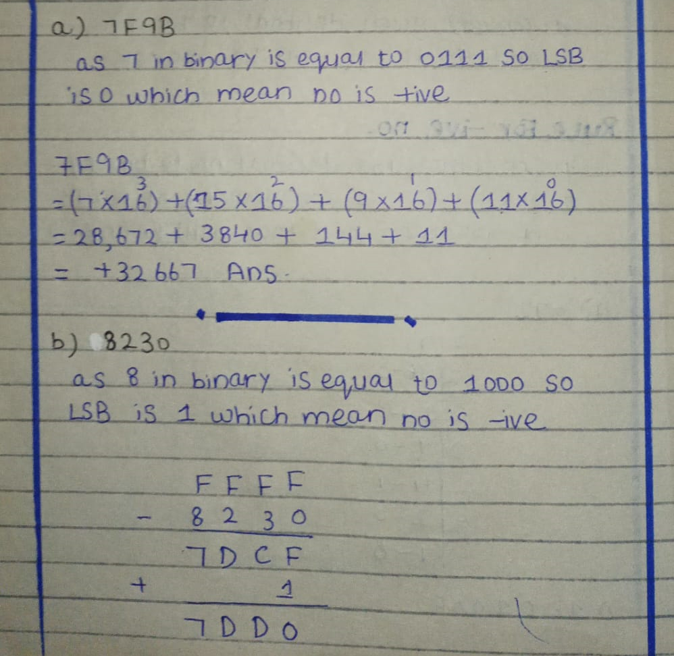 a) 7F9B
as 7 in binary is equal to 0111 so LSB
is 0 which mean no is +ive
Rule For -ive no.
7F9B
=(7×16³)+(15×16²)+(9×16¹)+(11×16⁰)
=28,672+3840+144+11
= +32667 Ans.
b) 8230
as 8 in binary is equal to 1000 so
LSB is 1 which mean no is -ive
F F F F
- 8 2 3 0
7 D C F
+ 1
7 D D 0